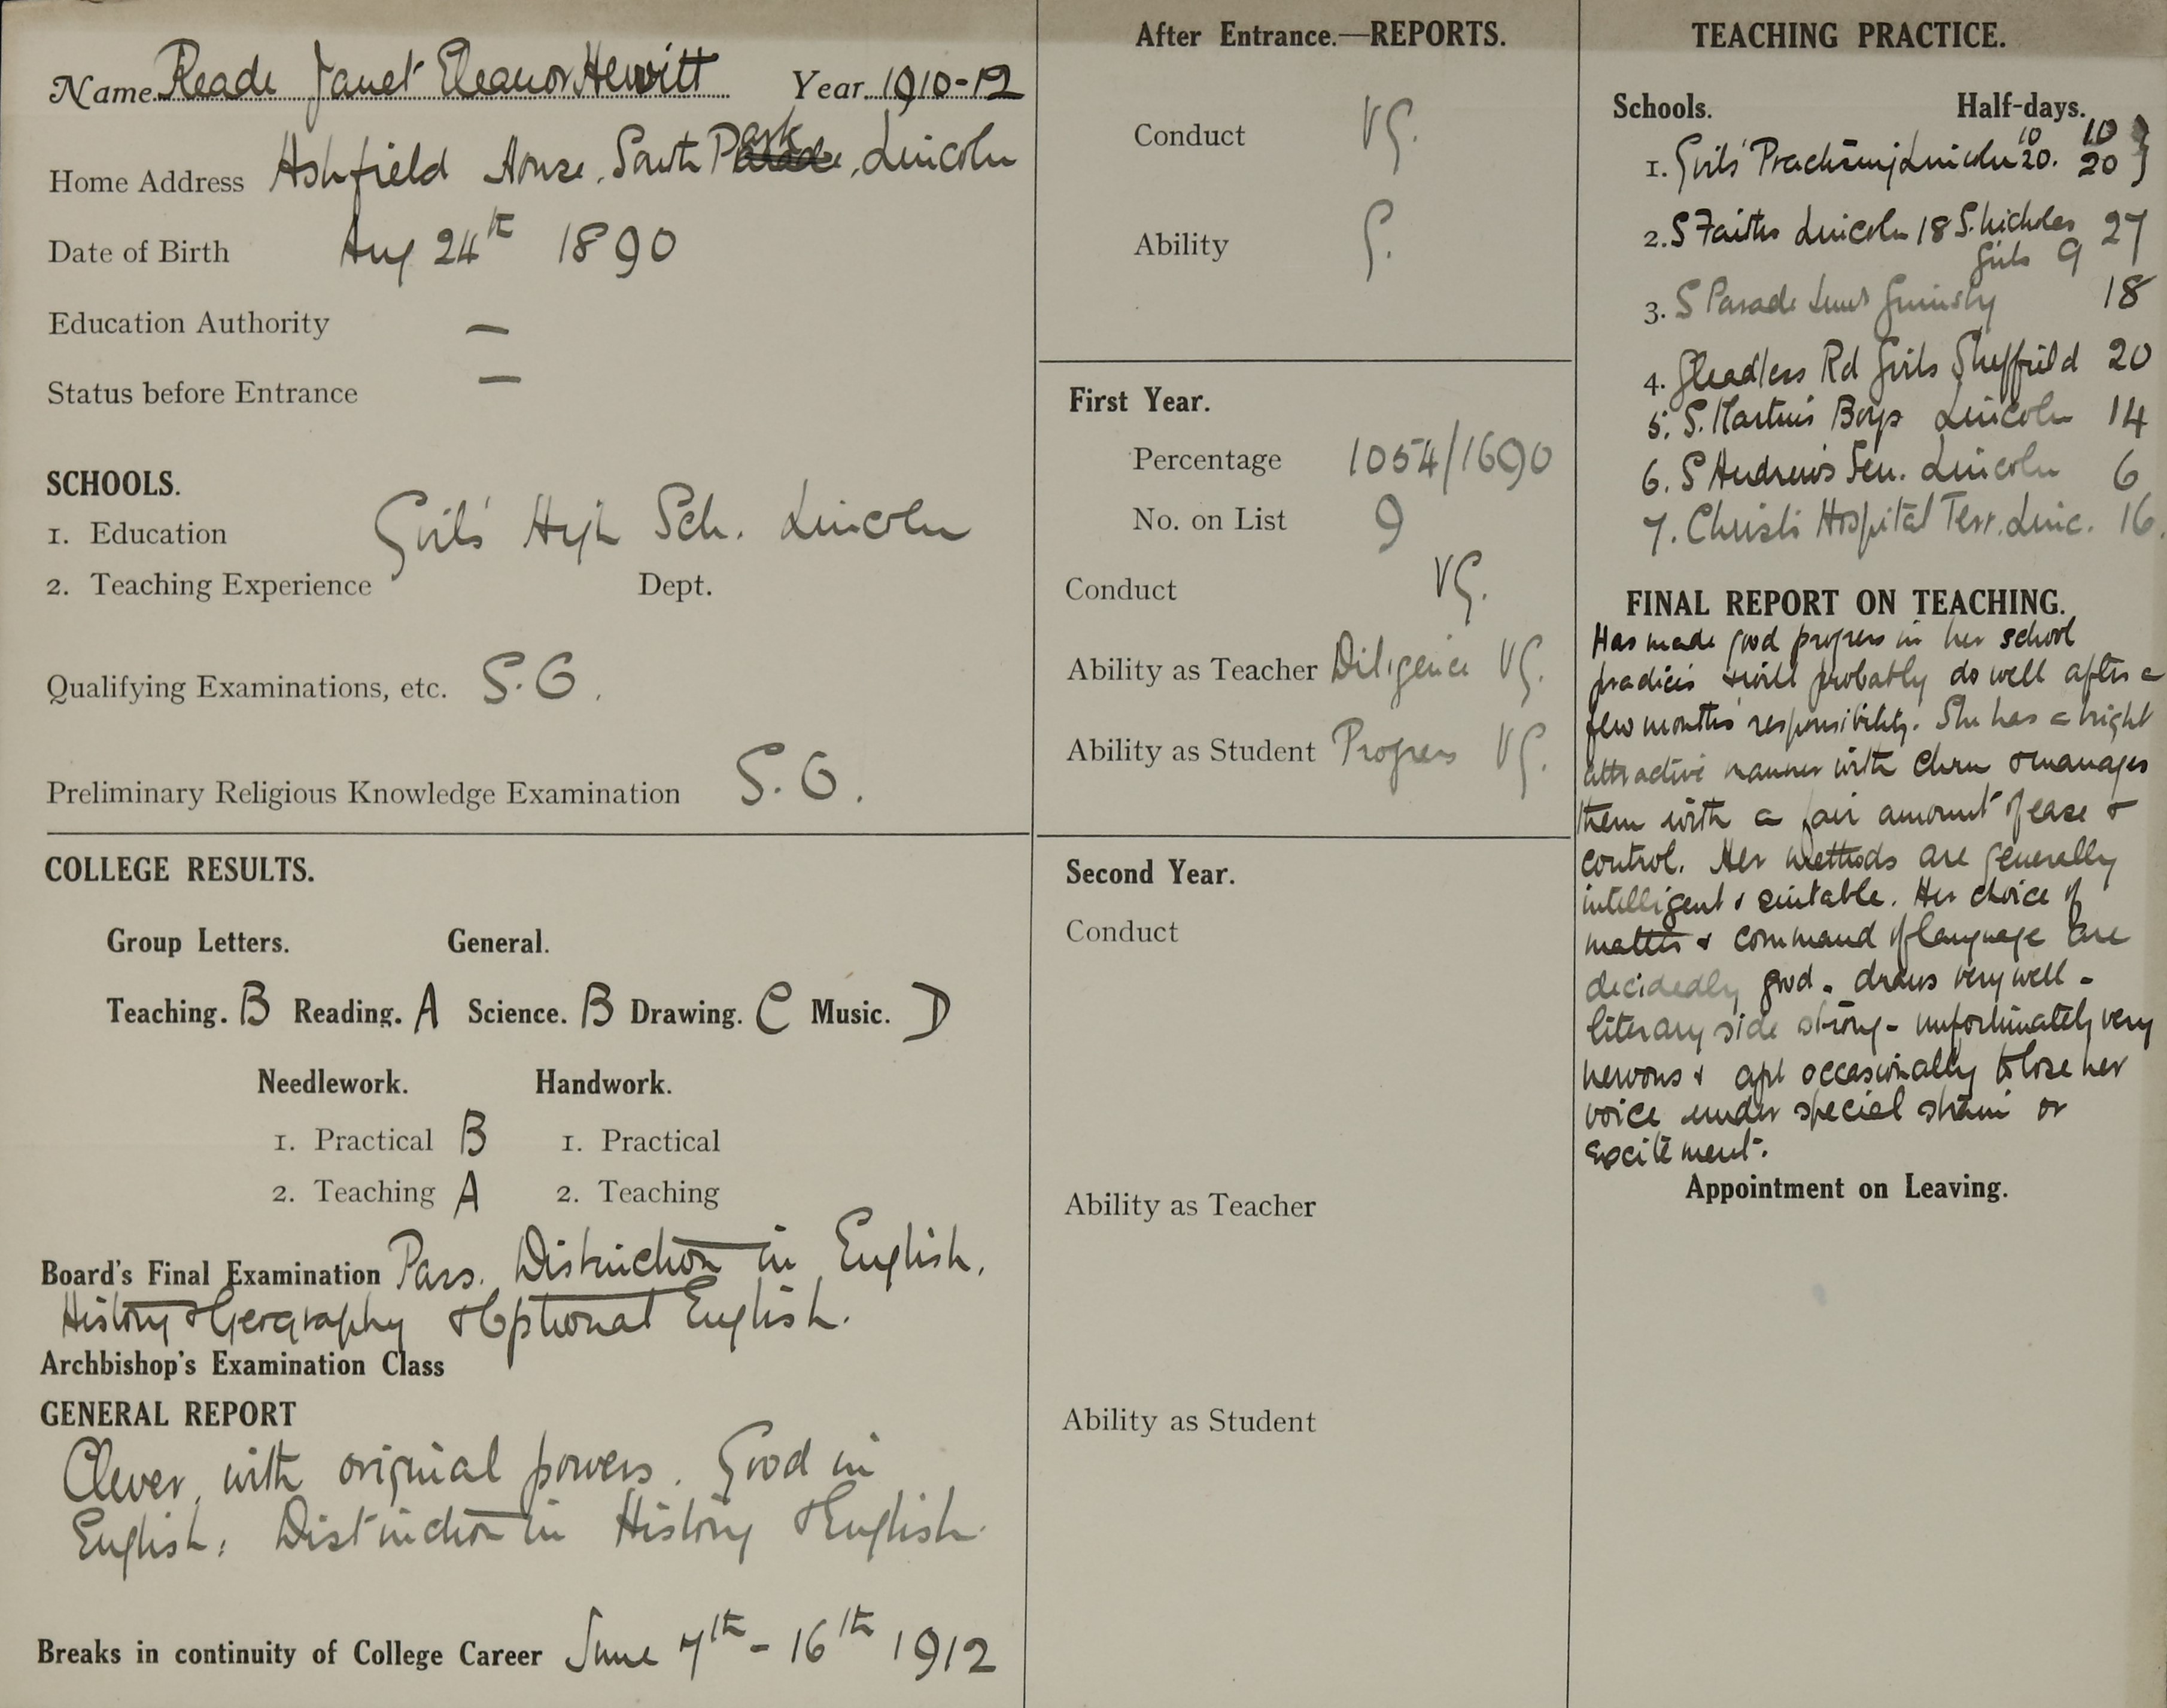 Name Reade Janet Eleanor Hewitt Year 1910-12
Home Address Ashfield House, South Park, Lincoln
Date of Birth Aug 24th 1890
Education Authority —
Status before Entrance —
SCHOOLS.
1. Education Girls' High Sch. Lincoln
2. Teaching Experience Dept.
Qualifying Examinations, etc. S.G.
Preliminary Religious Knowledge Examination S.G.
COLLEGE RESULTS.
Group Letters. General.
Teaching. B Reading. A Science. B Drawing. C Music. D
Needlework. Handwork.
1. Practical B 1. Practical
2. Teaching A 2. Teaching
Board's Final Examination Pass. Distinction in English,
History & Geography & Optional English.
Archbishop's Examination Class
GENERAL REPORT
Clever, with original powers. Good in
English. Distinction in History & English.
Breaks in continuity of College Career June 7th - 16th 1912
After Entrance.—REPORTS.
Conduct VG.
Ability G.
First Year.
Percentage 1054/1690
No. on List 9
Conduct VG.
Ability as Teacher Diligence VG.
Ability as Student Progress VG.
Second Year.
Conduct
Ability as Teacher
Ability as Student
TEACHING PRACTICE.
Schools. Half-days.
10 10
1. Girls' Practising Lincoln 20. 20 }
2. S Faiths Lincoln 18 S. Nicholas 27
Girls 9
3. S Parade Grimsby 18
4. Gleadless Rd Girls Sheffield 20
5. S. Martin's Boys Lincoln 14
6. S Andrew's Sen. Lincoln 6
7. Christ's Hospital Terr. Linc. 16.
FINAL REPORT ON TEACHING.
Has made good progress in her school
practice & will probably do well after a
few months' responsibility. She has a bright
attractive manner with chrn & manages
them with a fair amount of ease &
control. Her methods are generally
intelligent & suitable. Her choice of
matter & command of language are
decidedly good. draws very well -
literary side strong - unfortunately very
nervous & apt occasionally to lose her
voice under special strain or
excitement.
Appointment on Leaving.